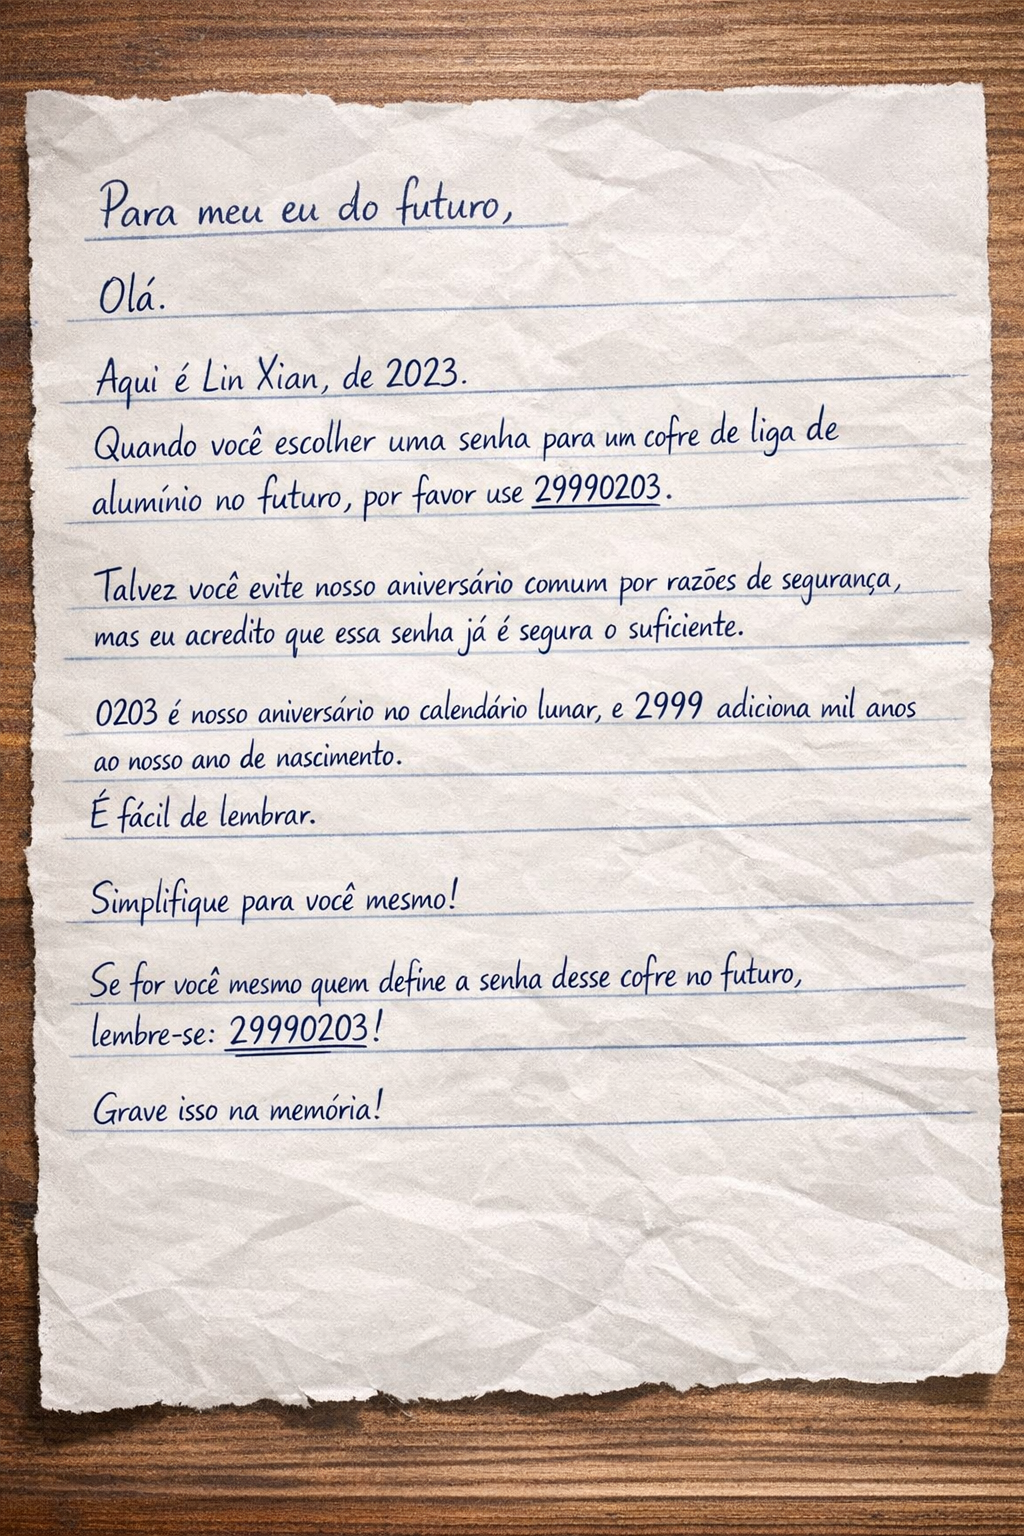 Para meu eu do futuro,
Olá.
Aqui é Lin Xian, de 2023.
Quando você escolher uma senha para um cofre de liga de
alumínio no futuro, por favor use 29990203.
Talvez você evite nosso aniversário comum por razões de segurança,
mas eu acredito que essa senha já é segura o suficiente.
0203 é nosso aniversário no calendário lunar, e 2999 adiciona mil anos
ao nosso ano de nascimento.
É fácil de lembrar.
Simplifique para você mesmo!
Se for você mesmo quem define a senha desse cofre no futuro,
lembre-se: 29990203!
Grave isso na memória!